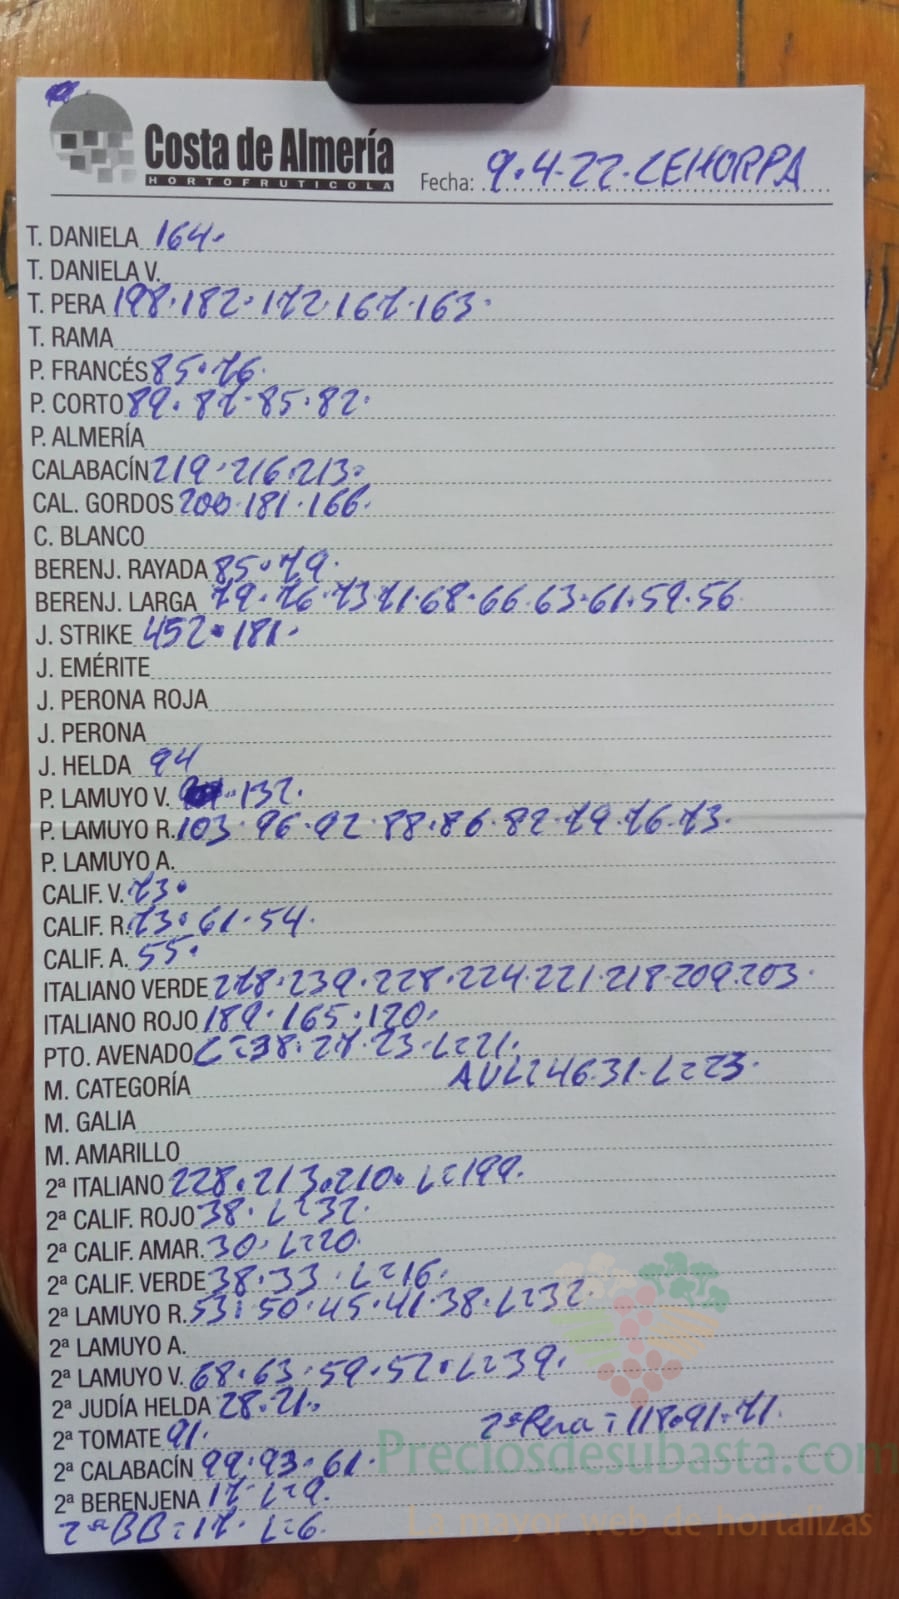 Costa de Almería
HORTOFRUTICOLA
Fecha: 9.4.22. CEHORPA
T. DANIELA 164.
T. DANELA V.
T. PERA 198.182.172.167.163.
T. RAMA
P. FRANCÉS 85.76.
P. CORTO 89.87.85.82.
P. ALMERÍA
CALABACÍN 219.216.213.
CAL. GORDOS 200.181.166.
C. BLANCO
BERENJ. RAYADA 85.79.
BERENJ. LARGA 79.76.73.71.68.66.63.61.59.56
J. STRIKE 452.181.
J. EMÉRITE
J. PERONA ROJA
J. PERONA
J. HELDA 94
P. LAMUYO V. 132.
P. LAMUYO R. 103.96.92.88.86.82.79.76.73.
P. LAMUYO A.
CALIF. V. 73.
CALIF. R. 73.61.54.
CALIF. A. 55.
ITALIANO VERDE 278.239.228.224.221.218.209.203.
ITALIANO ROJO 189.165.120.
PTO. AVENADO C=38.27.23.L=21.
M. CATEGORÍA AVL=46.31.L=23.
M. GALIA
M. AMARILLO
2ª ITALIANO 228.213.210.L=199.
2ª CALIF. ROJO 38.L=32.
2ª CALIF. AMAR. 30.L=20.
2ª CALIF. VERDE 38.33.L=16.
2ª LAMUYO R. 53.50.45.41.38.L=32.
2ª LAMUYO A.
2ª LAMUYO V. 68.63.59.52.L=39.
2ª JUDÍA HELDA 28.21.
2ª TOMATE 91. 2ªPera=118.91.71.
2ª CALABACÍN 99.93.61.
2ª BERENJENA 17.L=9.
2ªBB=17. L=6.
Preciosdesubasta.com
La mayor web de hortalizas